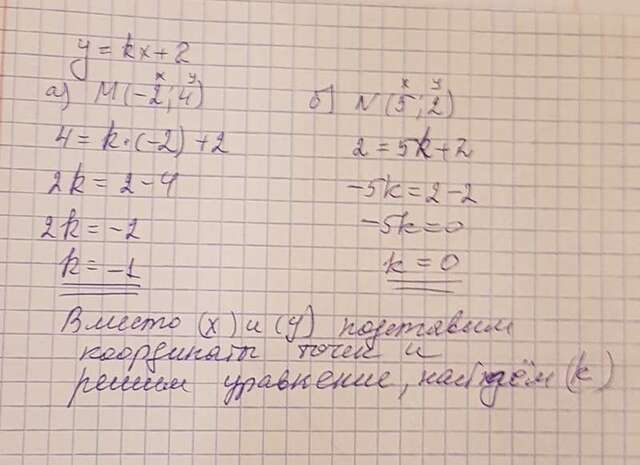 y = kx + 2
x y
а) M(-2; 4)
4 = k·(-2) + 2
2k = 2 - 4
2k = -2
k = -1
x y
б) N(5; 2)
2 = 5k + 2
-5k = 2 - 2
-5k = 0
k = 0
Вместо (x) и (y) подставим
координаты точек и
решим уравнение, найдём (k)